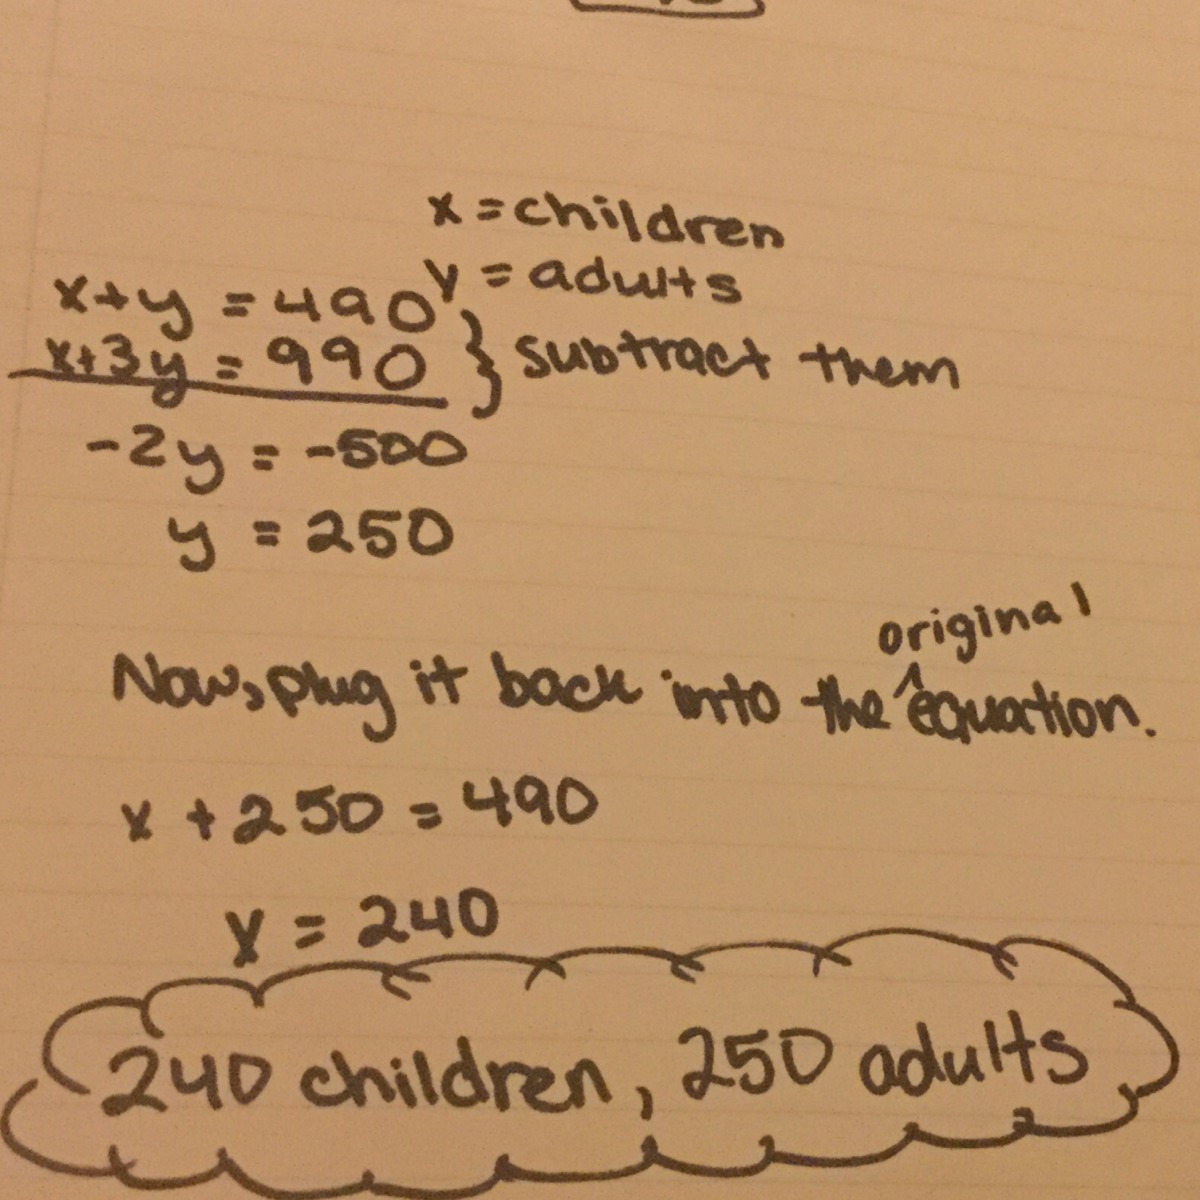 x = children
y = adults
x+y = 490
x+3y = 990 } subtract them
-2y = -500
y = 250
original
Now, plug it back into the ^ equation.
x + 250 = 490
x = 240
240 children, 250 adults